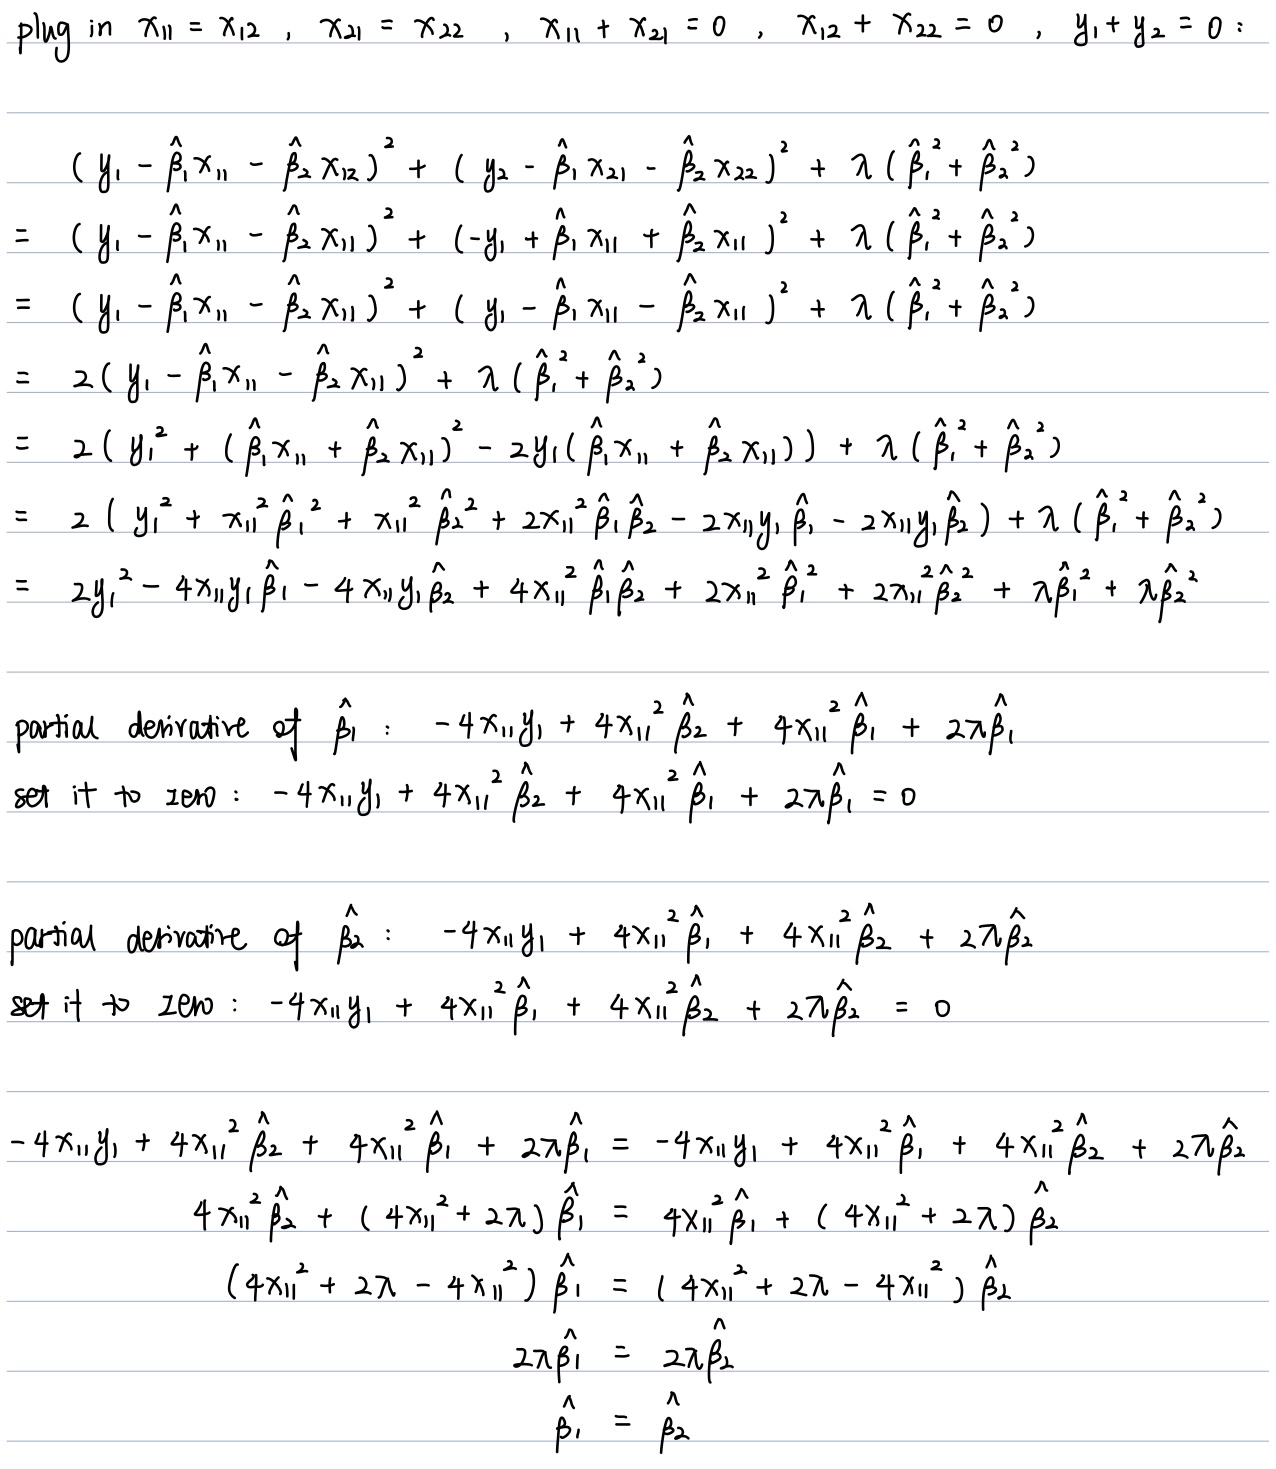 plug in x₁₁ = x₁₂ , x₂₁ = x₂₂ , x₁₁ + x₂₁ = 0 , x₁₂ + x₂₂ = 0 , y₁ + y₂ = 0 :
(y₁ - β̂₁x₁₁ - β̂₂x₁₂)² + (y₂ - β̂₁x₂₁ - β̂₂x₂₂)² + λ(β̂₁² + β̂₂²)
= (y₁ - β̂₁x₁₁ - β̂₂x₁₁)² + (-y₁ + β̂₁x₁₁ + β̂₂x₁₁)² + λ(β̂₁² + β̂₂²)
= (y₁ - β̂₁x₁₁ - β̂₂x₁₁)² + (y₁ - β̂₁x₁₁ - β̂₂x₁₁)² + λ(β̂₁² + β̂₂²)
= 2(y₁ - β̂₁x₁₁ - β̂₂x₁₁)² + λ(β̂₁² + β̂₂²)
= 2(y₁² + (β̂₁x₁₁ + β̂₂x₁₁)² - 2y₁(β̂₁x₁₁ + β̂₂x₁₁)) + λ(β̂₁² + β̂₂²)
= 2(y₁² + x₁₁²β̂₁² + x₁₁²β̂₂² + 2x₁₁²β̂₁β̂₂ - 2x₁₁y₁β̂₁ - 2x₁₁y₁β̂₂) + λ(β̂₁² + β̂₂²)
= 2y₁² - 4x₁₁y₁β̂₁ - 4x₁₁y₁β̂₂ + 4x₁₁²β̂₁β̂₂ + 2x₁₁²β̂₁² + 2x₁₁²β̂₂² + λβ̂₁² + λβ̂₂²
partial derivative of β̂₁ : -4x₁₁y₁ + 4x₁₁²β̂₂ + 4x₁₁²β̂₁ + 2λβ̂₁
set it to zero : -4x₁₁y₁ + 4x₁₁²β̂₂ + 4x₁₁²β̂₁ + 2λβ̂₁ = 0
partial derivative of β̂₂ : -4x₁₁y₁ + 4x₁₁²β̂₁ + 4x₁₁²β̂₂ + 2λβ̂₂
set it to zero : -4x₁₁y₁ + 4x₁₁²β̂₁ + 4x₁₁²β̂₂ + 2λβ̂₂ = 0
-4x₁₁y₁ + 4x₁₁²β̂₂ + 4x₁₁²β̂₁ + 2λβ̂₁ = -4x₁₁y₁ + 4x₁₁²β̂₁ + 4x₁₁²β̂₂ + 2λβ̂₂
4x₁₁²β̂₂ + (4x₁₁² + 2λ)β̂₁ = 4x₁₁²β̂₁ + (4x₁₁² + 2λ)β̂₂
(4x₁₁² + 2λ - 4x₁₁²)β̂₁ = (4x₁₁² + 2λ - 4x₁₁²)β̂₂
2λβ̂₁ = 2λβ̂₂
β̂₁ = β̂₂